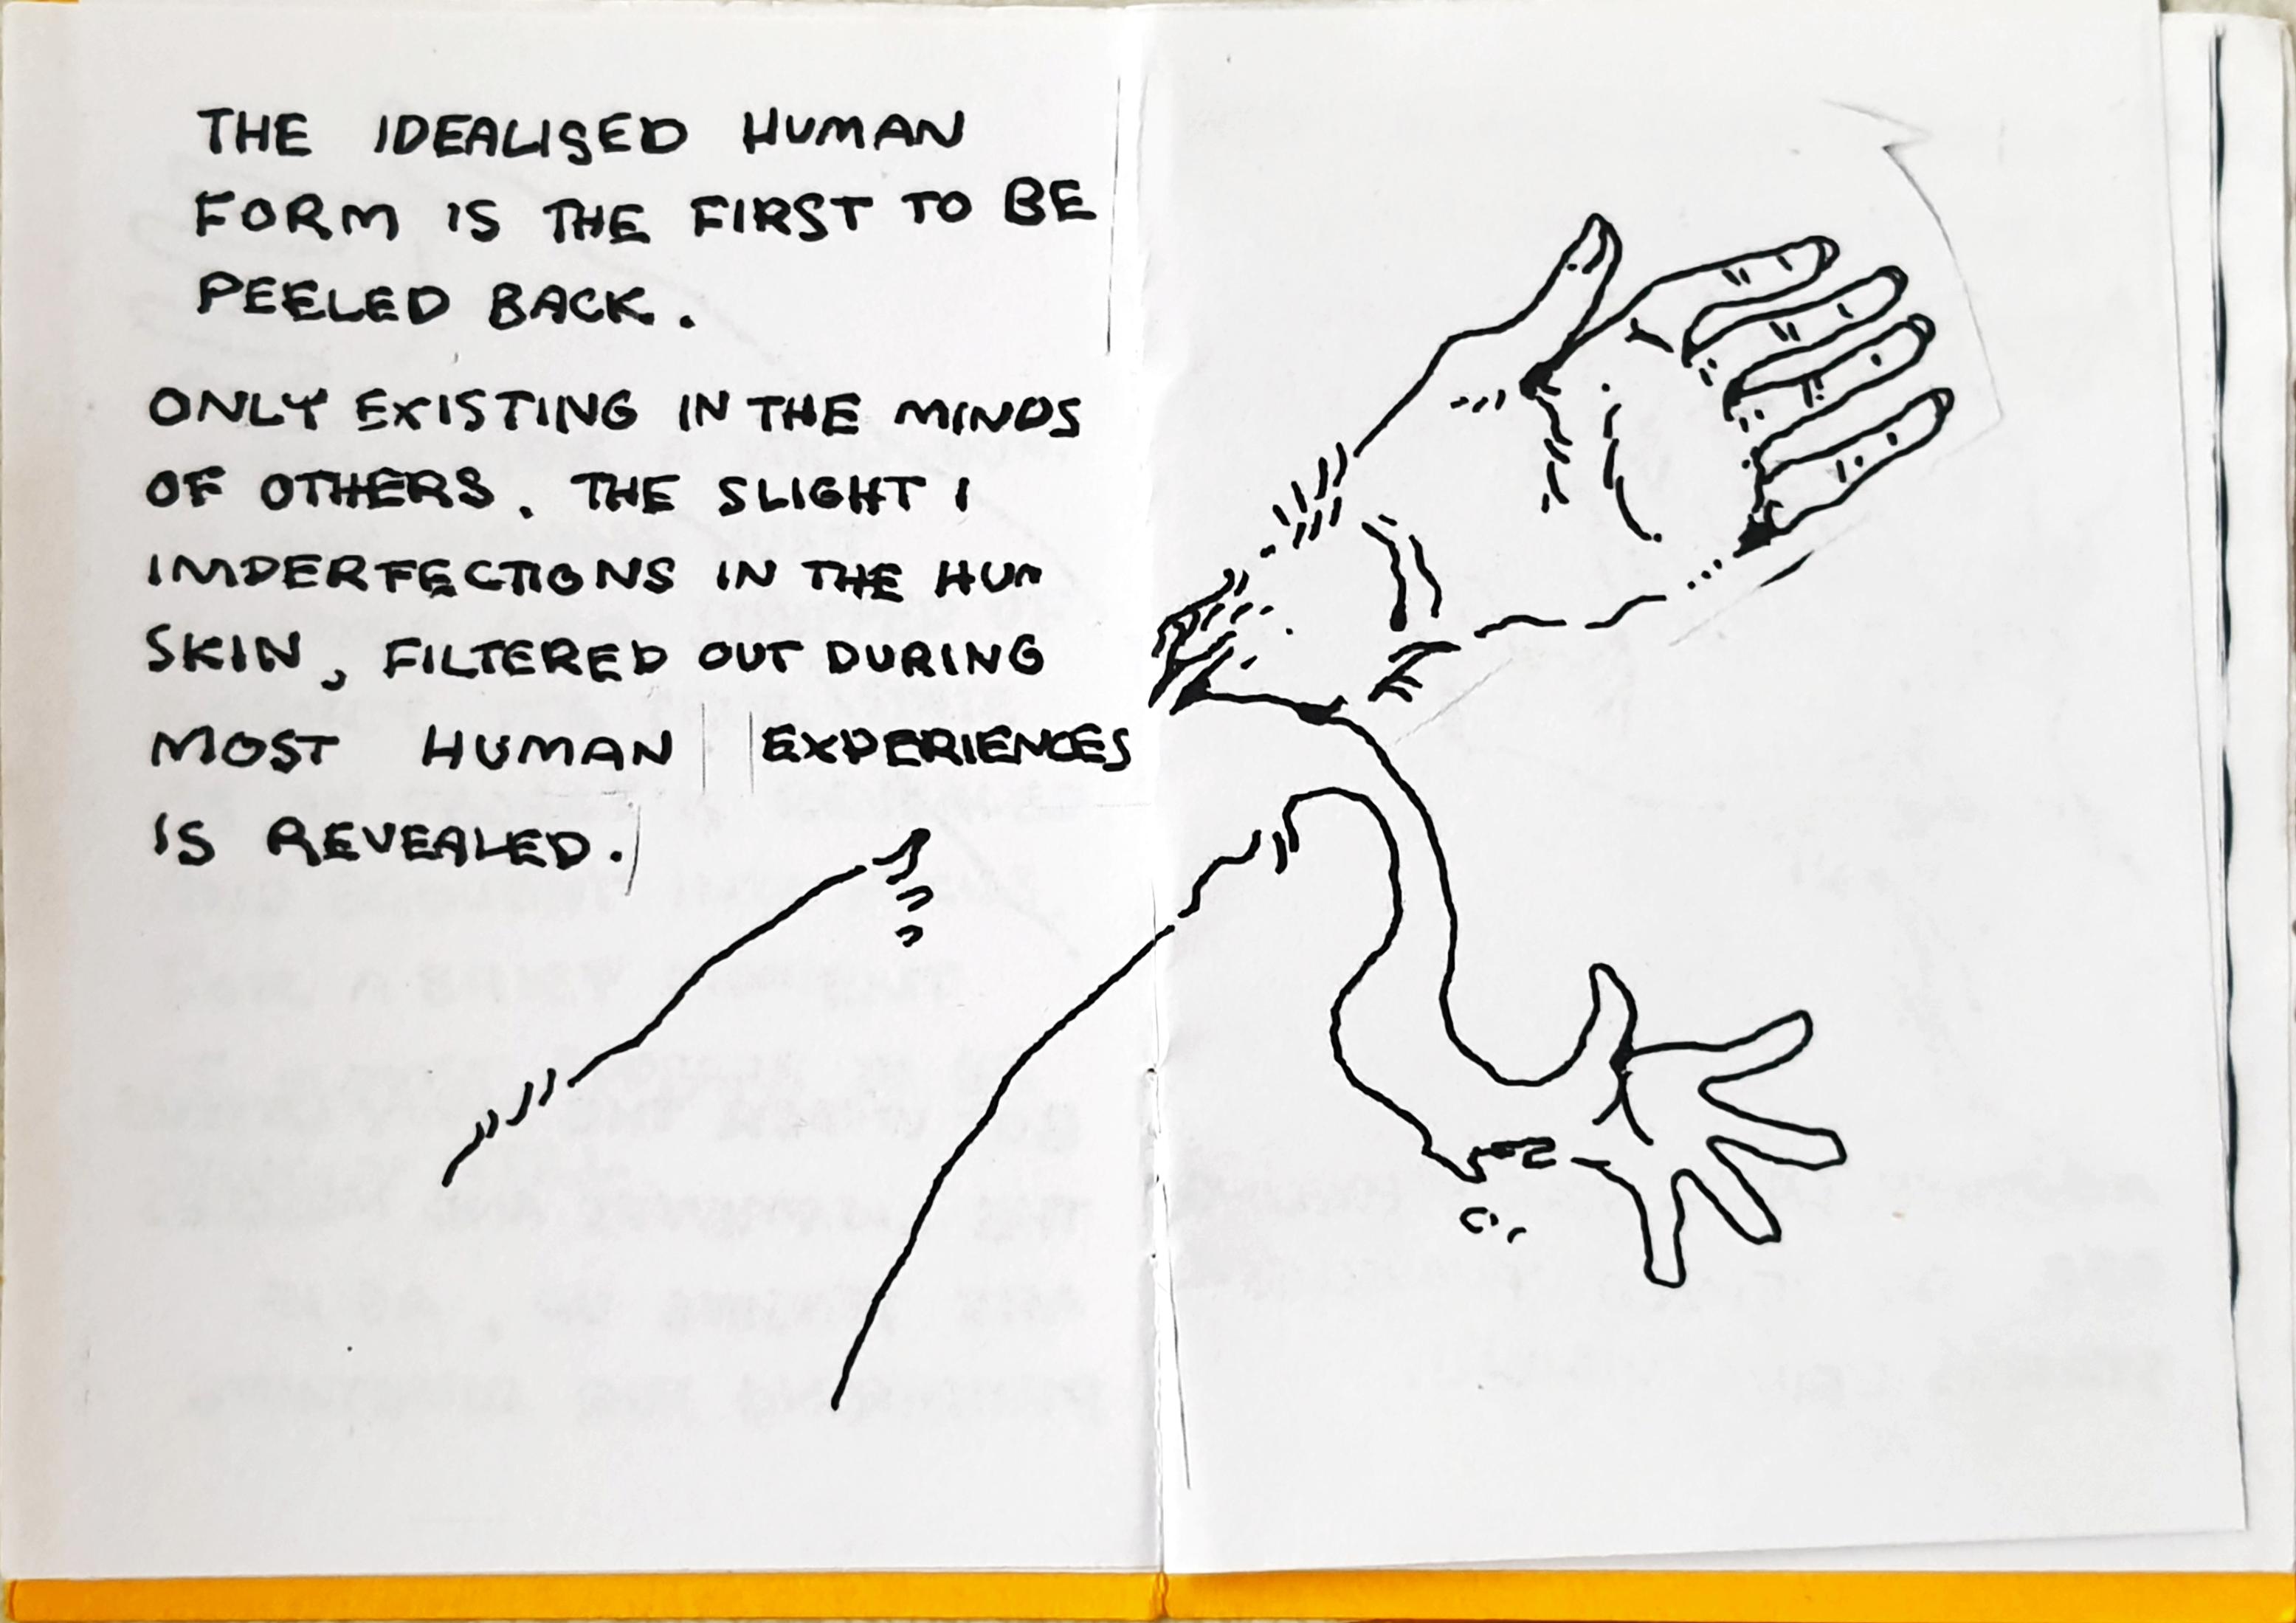 THE IDEALISED HUMAN
FORM IS THE FIRST TO BE
PEELED BACK.
ONLY EXISTING IN THE MINDS
OF OTHERS. THE SLIGHT I
IMPERFECTIONS IN THE HUM
SKIN, FILTERED OUT DURING
MOST HUMAN EXPERIENCES
IS REVEALED.